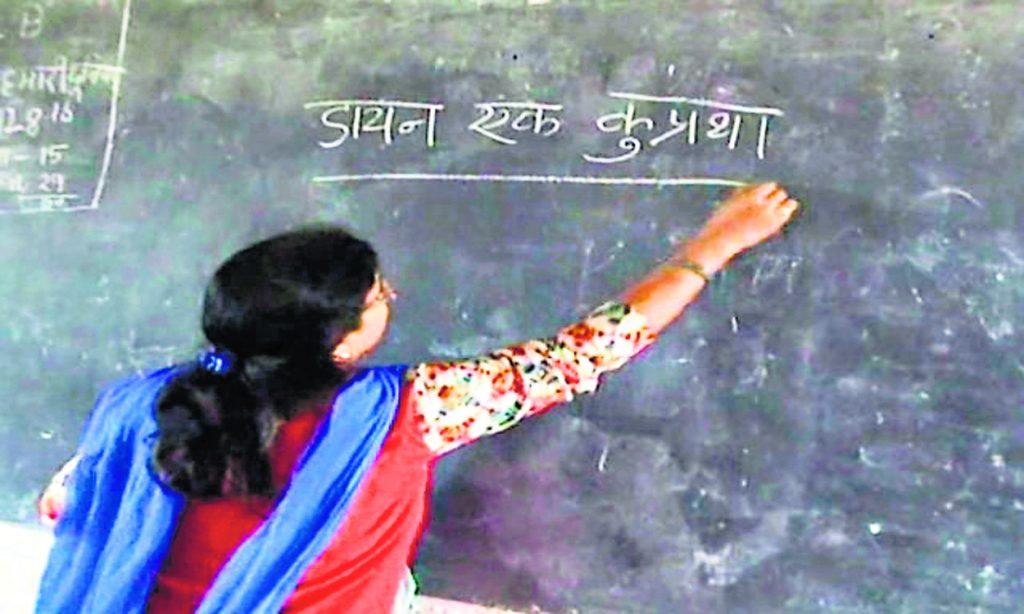 B
128 18
- 15
29
डायन एक कुप्रथा